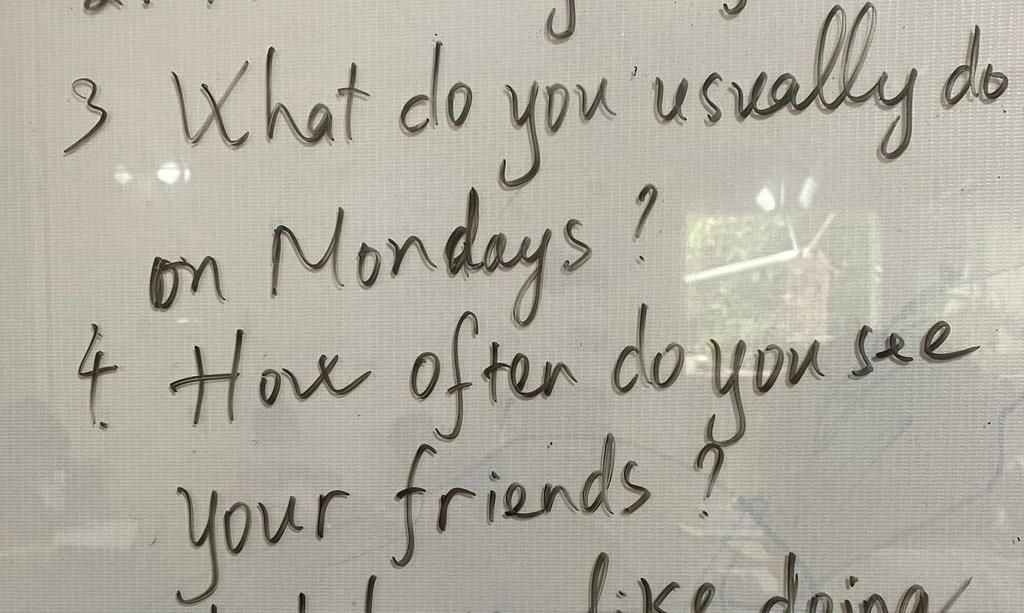 3 What do you usually do
on Mondays?
4. How often do you see
your friends?
like doing